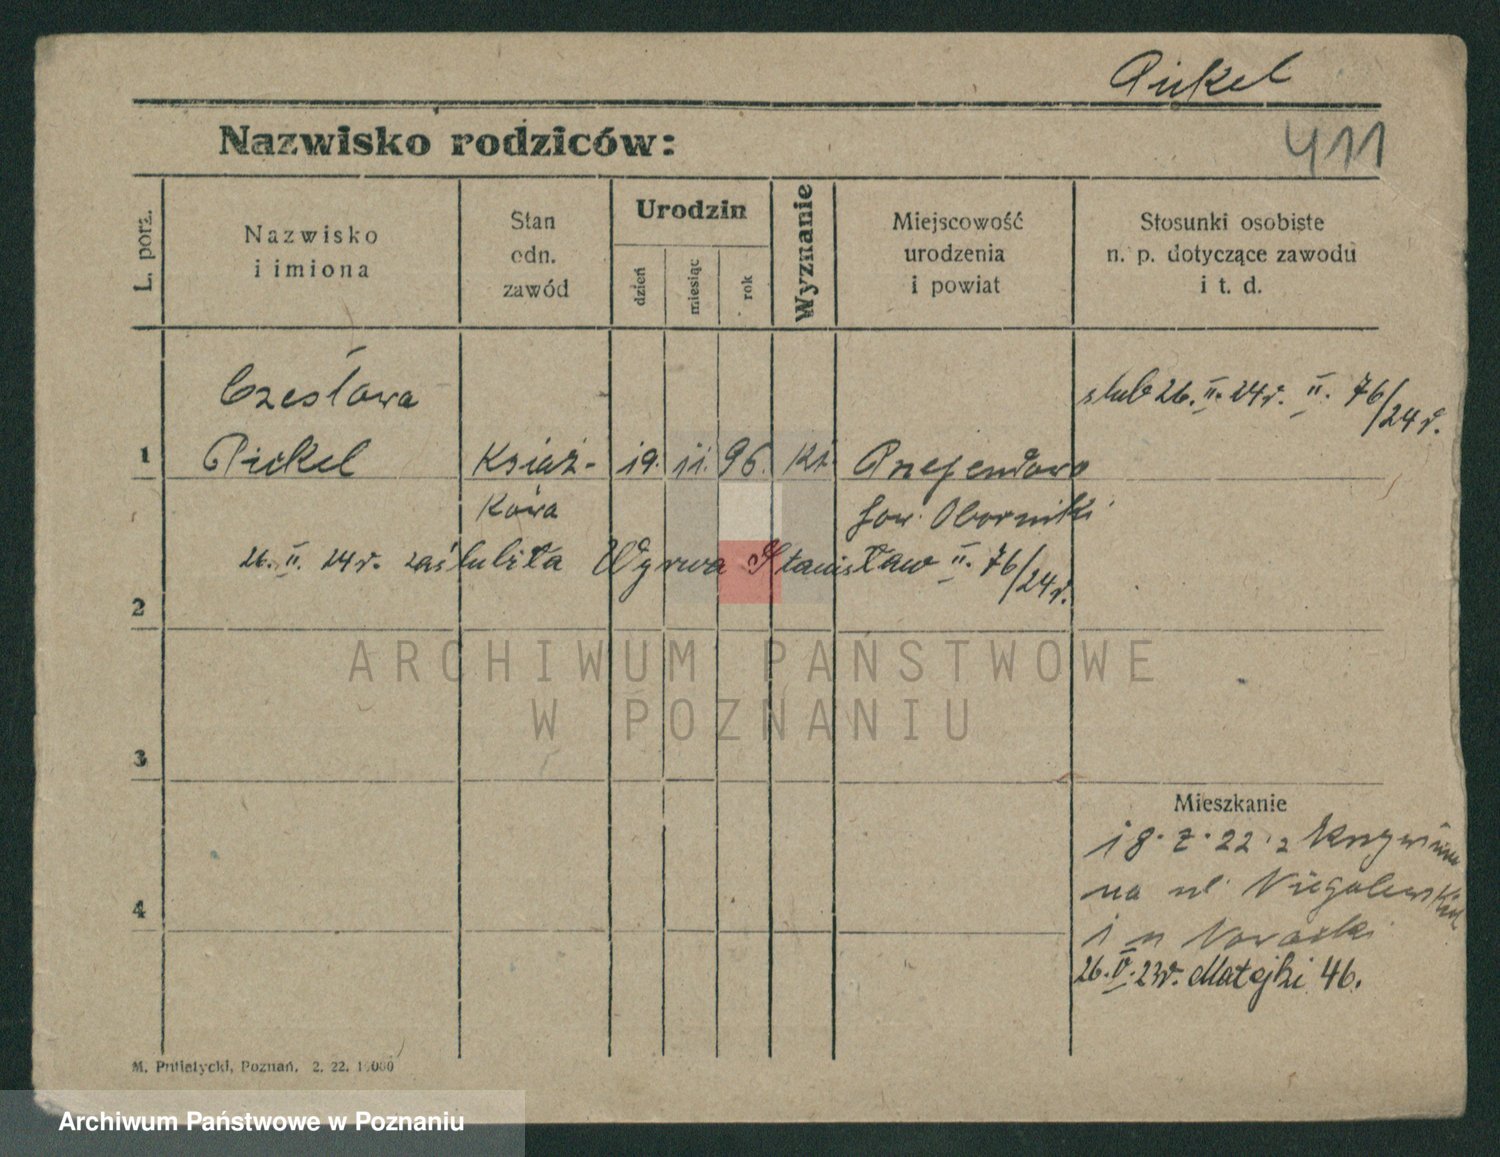 Pickel
411
Nazwisko rodziców:
L. porz.
Nazwisko
i imiona
Stan
odn.
zawód
Urodzin
dzień
miesiąc
rok
Wyznanie
Miejscowość
urodzenia
i powiat
Stosunki osobiste
n. p. dotyczące zawodu
i t. d.
Czesława
ślub 26. II. 24r. II. 76/24r.
1 Pickel Książ- 19. 11. 96. kt.
kowa
pow. Oborniki
26. II. 24r. zaślubiła Wyrwa Stanisław II. 76/24r.
2
ARCHIWUM PAŃSTWOWE
W POZNANIU
3
Mieszkanie
18. 7. 22 z
na ul
4
26. V. 23r. Matejki 46.
M. Putiatycki, Poznań. 2. 22.
Archiwum Państwowe w Poznaniu